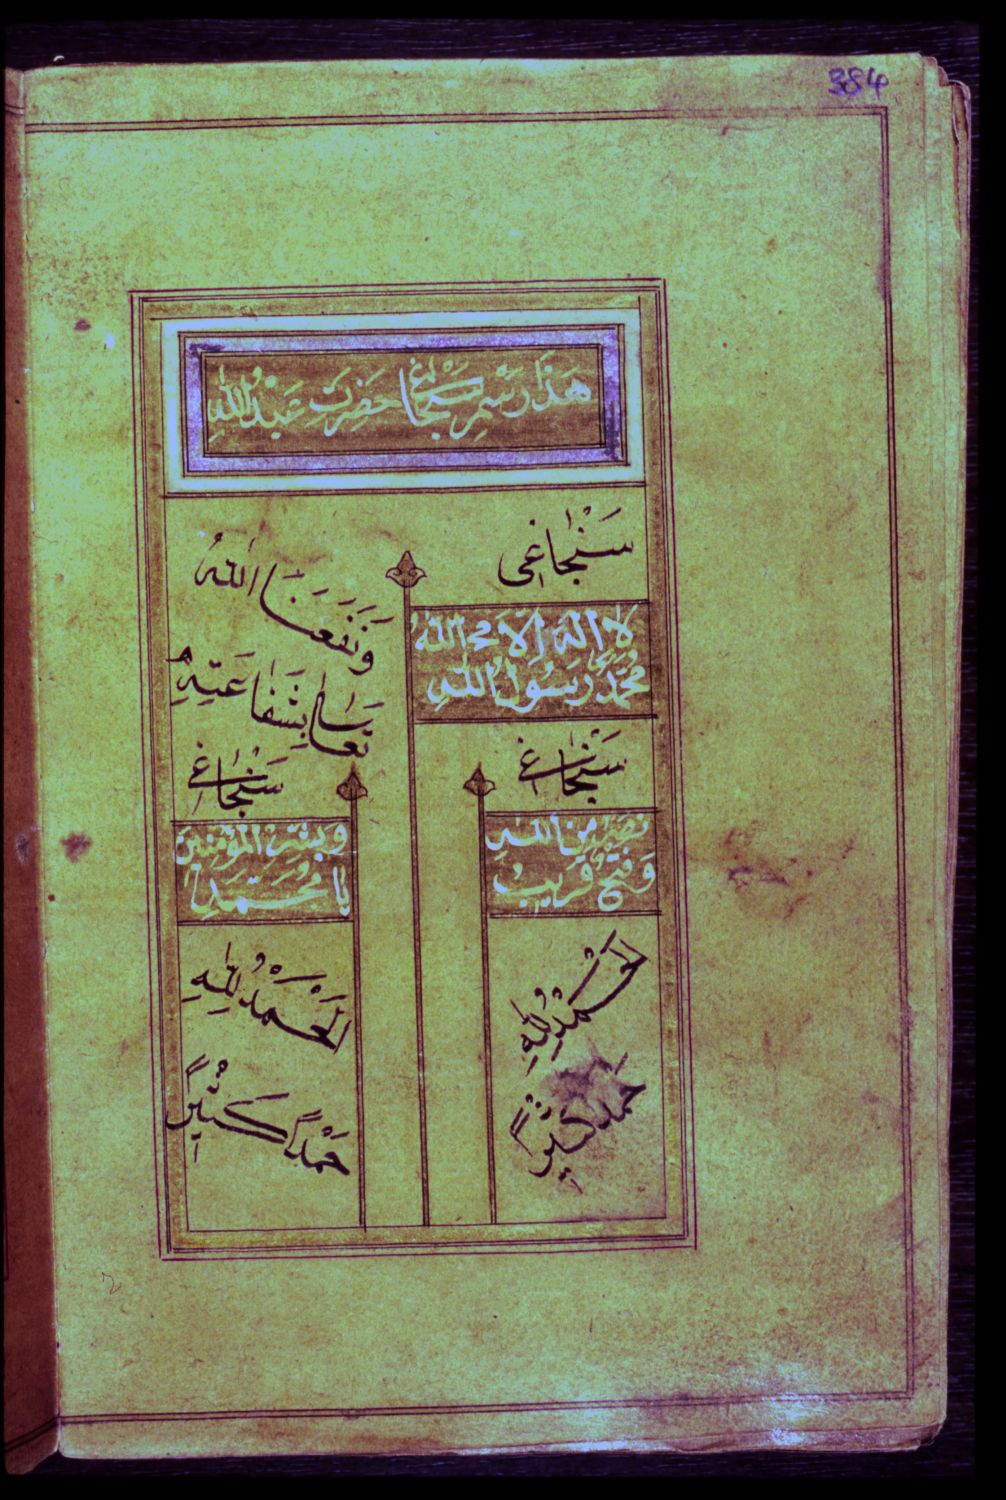 384
هَذَا رَسْمِ سَنْجَاغ حَضْرَت عَبْدُاللهِ
سَنْجَاغِي
لَا اِلَهَ اِلَّا اللهُ
مُحَمَّدٌ رَسُولُ اللهِ
وَنَفَعَنَا اللهُ
تَعَالَى بِشَفَاعَتِهِ
سَنْجَاغِ
نَصْرٌ مِنَ اللهِ
وَفَتْحٌ قَرِيبٌ
سَنْجَاغِ
وَبَشِّرِ الْمُؤْمِنِينَ
يَا مُحَمَّد
اَلْحَمْدُ لِلّهِ
حَمْدًا كَثِيرًا
اَلْحَمْدُ لِلّهِ
حَمْدًا كَثِيرًا